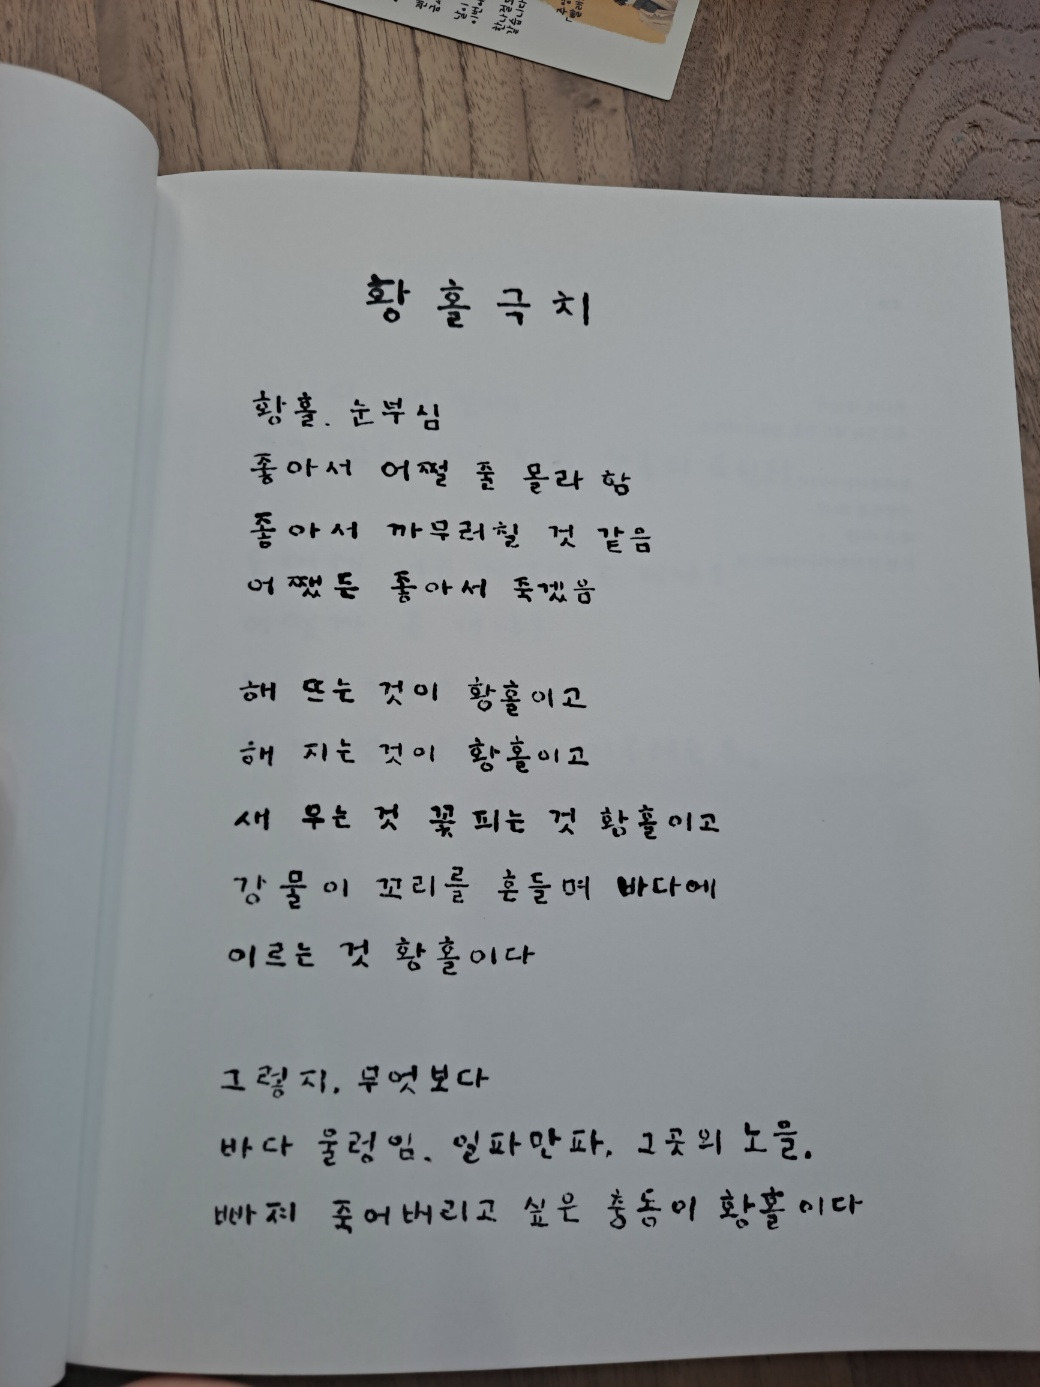 황홀극치
황홀. 눈부심
좋아서 어쩔 줄 몰라 함
좋아서 까무러칠 것 같음
어쨌든 좋아서 죽겠음
해 뜨는 것이 황홀이고
해 지는 것이 황홀이고
새 우는 것 꽃 피는 것 황홀이고
강물이 꼬리를 흔들며 바다에
이르는 것 황홀이다
그렇지. 무엇보다
바다 울렁임. 일파만파. 그곳의 노을.
빠져 죽어버리고 싶은 충동이 황홀이다